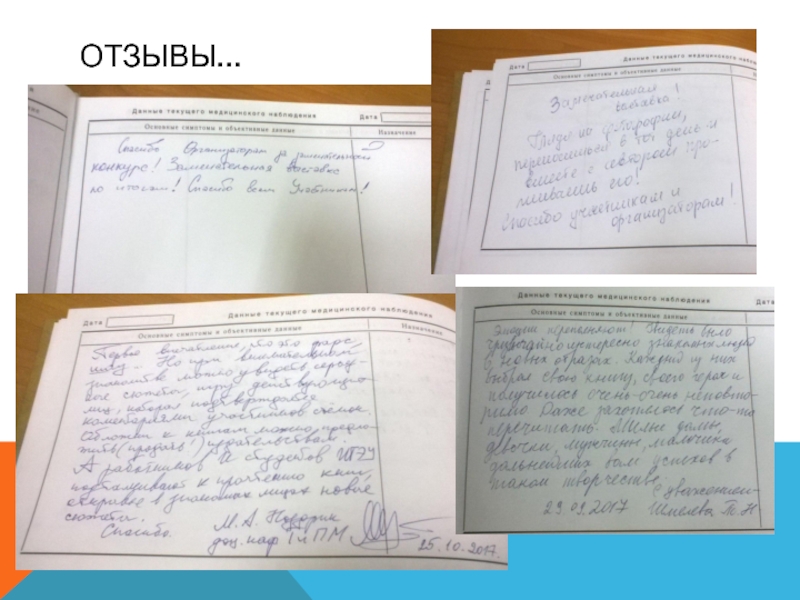 ОТЗЫВЫ...
Данные текущего медицинского наблюдения
Дата
Основные симптомы и объективные данные
Назначения
Спасибо Организаторам за
конкурс! Замечательная выставка
по итогам! Спасибо всем Участникам!
Дата
Данные текущего медицинского наблю
Основные симптомы и объективные данные
Замечательная
выставка!
Глядя на фотографии,
переносишься в тот день и
вместе с автором про-
живаешь его!
Спасибо участникам и
организаторам!
Дата
Данные текущего медицинского наблюдения
Основные симптомы и объективные данные
Назначения
Первое впечатление, что это фарс,
шоу... Но при внимательном
знакомстве можно увидеть серьез-
ные сюжеты, игру действующих
лиц, которая подтверждается
комментариями участников съемок.
Обложки к книгам можно предло-
жить (продать!) издательствам.
А работников и студентов ИГЭУ
подталкивают к прочтению книг,
открывая в знакомых лицах новые
сюжеты.
Спасибо.
М.А. Ноздрин
доц. каф ТиПМ
25.10.2017.
Данные текущего медицинского наблюдения
Дата
Основные симптомы и объективные данные
Эмоции переполняют! Увидеть было
чрезвычайно интересно знакомых людей
в новых образах. Каждый из них
выбрал свою книгу, своего героя и
получилось очень-очень неповто-
римо. Даже захотелось что-то
перечитать. Милые дамы,
девочки, мужчины, мальчики
дальнейших вам успехов в
таком творчестве.
С уважением-
29.09.2017